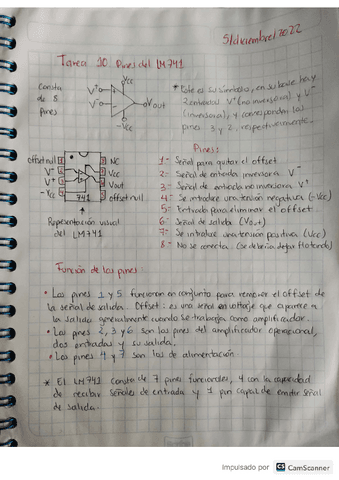 5/diciembre/2022
Tarea 20. Pines del LM741
Consta de 8 pines
V+
V-
Vcc
Vout
-Vcc
* Este es su símbolo, en su base hay
2 entradas V+ (no inversora) y V-
(inversora), y corresponden a los
pines 3 y 2, respectivamente.
Pines:
offset null
V-
V+
-Vcc
NC
Vcc
Vout
offset null
741
Representación visual
del LM741
1- Señal para quitar el offset
2- Señal de entrada inversora V-
3- Señal de entrada no inversora V+
4- Se introduce una tensión negativa (-Vcc)
5- Entrada para eliminar el offset
6- Señal de salida (Vout)
7- Se introduce una tension positiva (Vcc)
8- No se conecta (se debería dejar flotando)
Función de los pines:
• Los pines 1 y 5 funcionan en conjunto para remover el offset de
la señal de salida. Offset: es una señal en voltaje que aparece a
la salida generalmente cuando se trabaja como amplificador.
• Los pines 2, 3 y 6 son los pines del amplificador operacional,
dos entradas y su salida.
• Los pines 4 y 7 son las de alimentación.
* El LM741 consta de 7 pines funcionales, 4 con la capacidad
de recibir señales de entrada y 1 pin capaz de emitir señal
de salida.
Impulsado por CS CamScanner